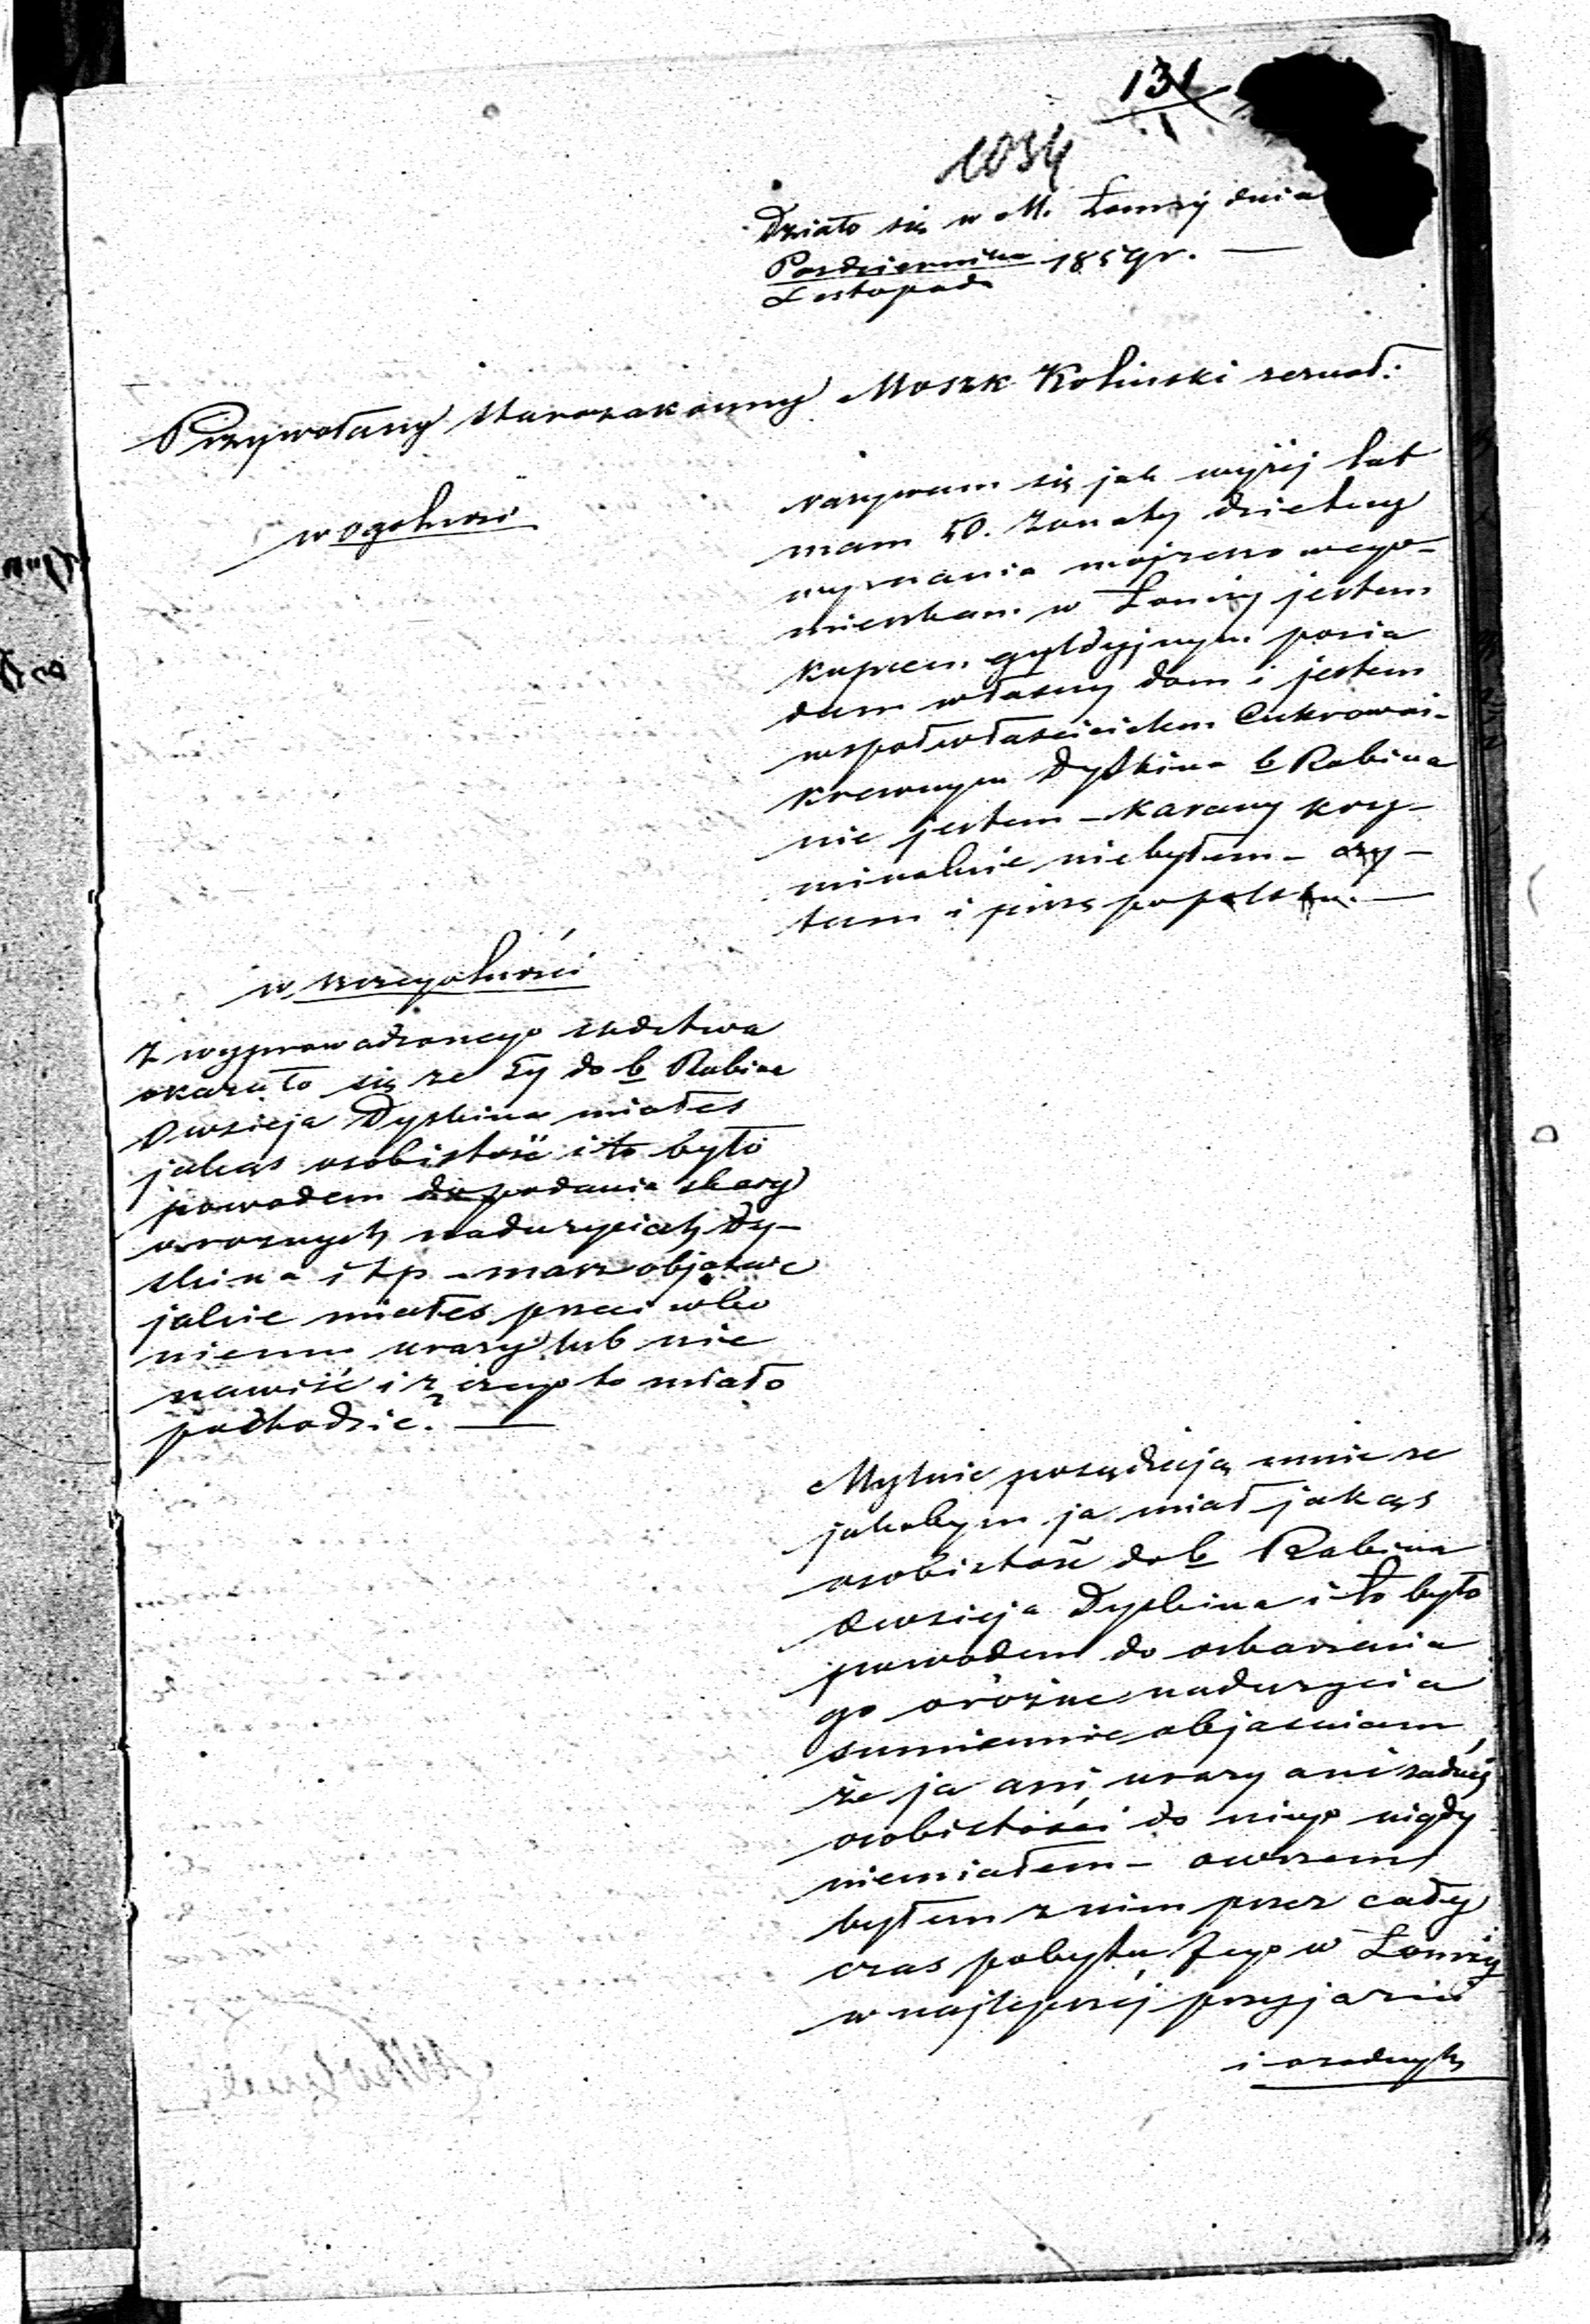 131
1034
Działo się w M. Łomży dnia
Pazdziernika 1859 r. —
Listopada
Przywołany Starozakonny Moszk Koliński zeznał:
w ogolności
nazywam się jak wyżej lat
mam 50. zonaty dzietny
wyznania mojżeszowego –
mieszkam w Łomży jestem
kupcem gyldyjnym posia
dam własny dom i jestem
wspołwłaścicielem Cukrowni –
krewnym Dyskina b Rabina
nie jestem – karany kry–
minalnie niebyłem – czy–
tam i piszę popolsku. —
w szczegolności
Z wyprowadzonego sledztwa
okazało się ze Ty do b Rabina
Owsieja Dyskina miałes
jakąs osobistość i to było
powodem do podania skargi
o roznych naduzyciach Dy–
skina i tp – masz objasnic
jakie miałes przeciwko
niemu urazy lub nie
nawiść i z czego to miało
pochodzic? —
Mylnie posądzają mnie ze
jakobym ja miał jakąs
osobistość do b Rabina
Owsieja Dyskina i to było
powodem do oskarzenia
go o rożne naduzycia
sumiennie objasniam,
że ja ani urazy ani zadnéj
osobistości do niego nigdy
niemiałem – owszem
byłem z nim przez cały
czas pobytu Jego w Łomży
w najlepszéj przyjazni
i o zadnych